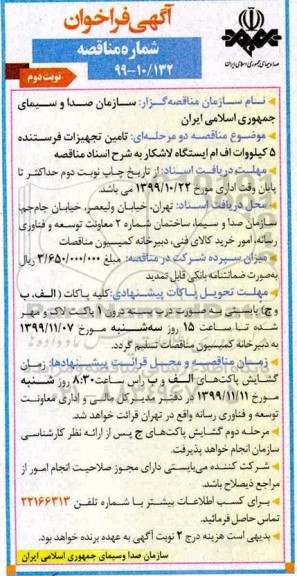 آگهی فراخوان
شماره مناقصه
۹۹-۱۰/۱۳۲
نوبت دوم
صدا و سیمای جمهوری اسلامی ایران
نام سازمان مناقصه‌گزار: سازمان صدا و سیمای
جمهوری اسلامی ایران
موضوع مناقصه دو مرحله‌ای: تامین تجهیزات فرستنده
۵ کیلووات اف ام ایستگاه لاشکار به شرح اسناد مناقصه
مهلت دریافت اسناد: از تاریخ چاپ نوبت دوم حداکثر تا
پایان وقت اداری مورخ ۱۳۹۹/۱۰/۲۲ می باشد.
محل دریافت اسناد: تهران، خیابان ولیعصر، خیابان جام‌جم،
سازمان صدا و سیما، ساختمان شماره ۲ معاونت توسعه و فناوری
رسانه، امور خرید کالای فنی، دبیرخانه کمیسیون مناقصات
میزان سپرده شرکت در مناقصه: مبلغ ۳/۶۵۰/۰۰۰/۰۰۰ ریال
به‌صورت ضمانتنامه بانکی قابل تمدید
مهلت تحویل پاکات پیشنهادی: کلیه پاکات (الف، ب
و ج) بایستی به صورت دربسته درون ۱ پاکت لاک و مهر
شده تا ساعت ۱۵ روز سه‌شنبه مورخ ۱۳۹۹/۱۱/۰۷
به دبیرخانه کمیسیون مناقصات تسلیم گردد.
زمان مناقصه و محل قرائت پیشنهادها: زمان
گشایش پاکت‌های الف و ب راس ساعت ۸:۳۰ روز شنبه
مورخ ۱۳۹۹/۱۱/۱۱ در دفتر مدیرکل مالی و اداری معاونت
توسعه و فناوری رسانه واقع در تهران قرائت خواهد شد.
مرحله دوم گشایش پاکت‌های ج پس از ارائه نظر کارشناسی
سازمان انجام خواهد پذیرفت.
شرکت کننده می‌بایستی دارای مجوز صلاحیت انجام امور از
مراجع ذیصلاح باشد.
برای کسب اطلاعات بیشتر با شماره تلفن ۲۲۱۶۶۳۱۳
تماس حاصل فرمائید.
بدیهی است هزینه درج ۲ نوبت آگهی به عهده برنده خواهد بود.
سازمان صدا وسیمای جمهوری اسلامی ایران